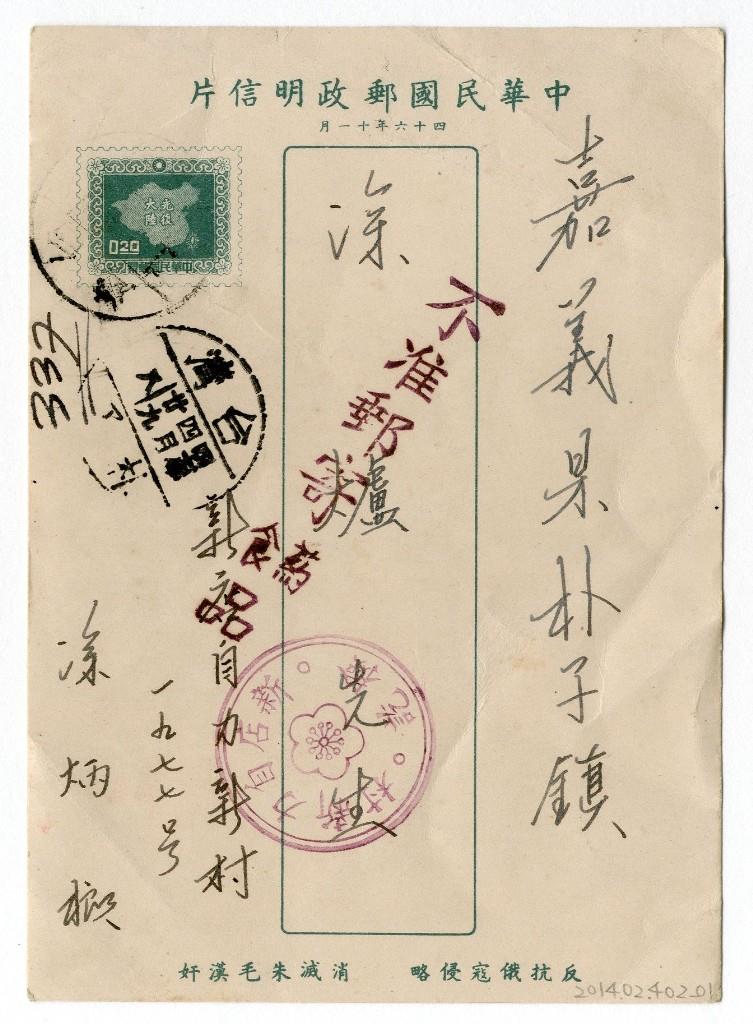 中華民國郵政明信片
四十六年十一月
光復
大陸
0.20
中華民國郵票
嘉義県朴子鎮
涂
爐
先生
不准郵寄
食品
新店自力新村
一九七七号
涂炳榔
台灣
四
廿四
月
九
332
新店自力新村
反抗俄寇侵略 消滅朱毛漢奸
2014.02.402.01